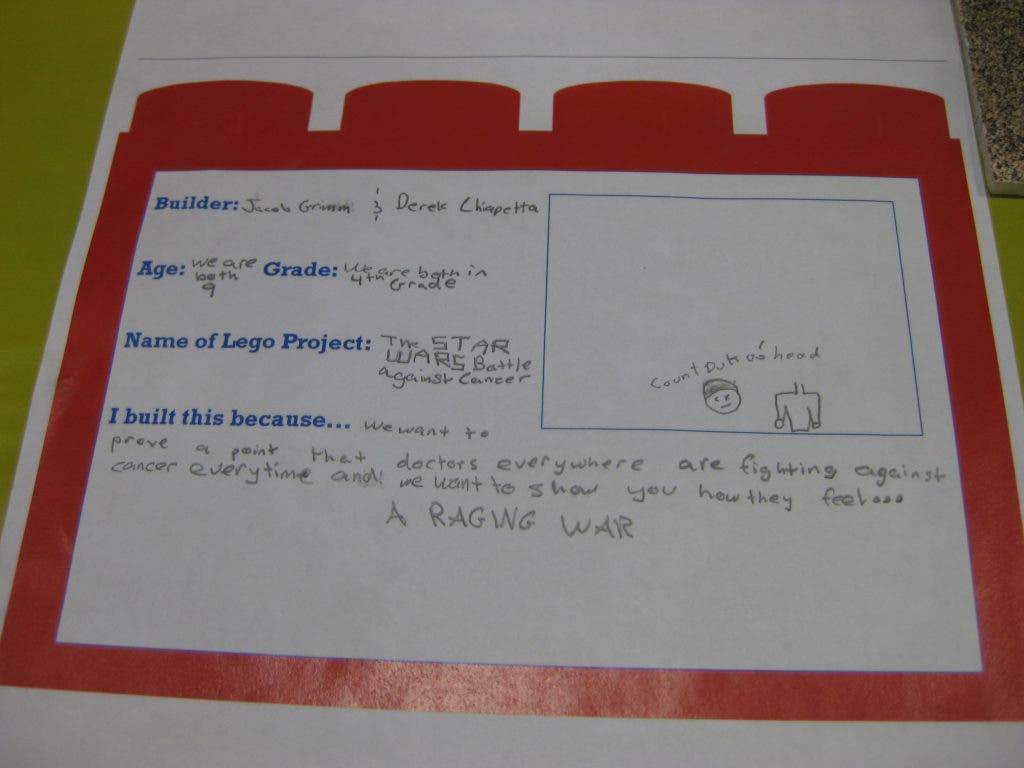 Builder: Jacob Grimm & Derek Chiapetta
Age: we are both 9 Grade: We are both in 4th Grade
Name of Lego Project: The STAR WARS Battle against Cancer
Count Dukoo's head
I built this because... we want to
prove a point that doctors everywhere are fighting against
cancer everytime and we want to show you how they feel...
A RAGING WAR